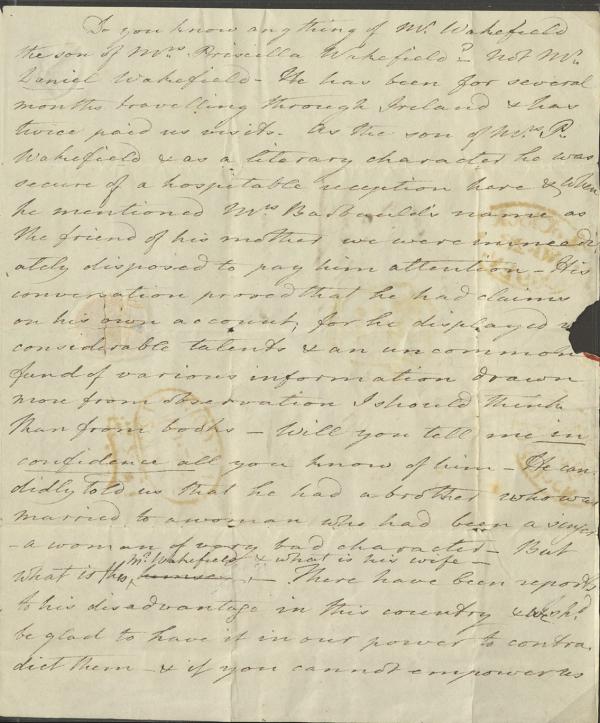 Do you know anything of Mr. Wakefield
the son of Mrs. Priscilla Wakefield? – not Mr.
Daniel Wakefield – He has been for several
months travelling through Ireland & has
twice paid us visits. As the son of Mrs. P.
Wakefield & as a literary character he was
secure of a hospitable reception here & when
he mentioned Mrs Barbauld's name as
the friend of his mother we were immedi
ately disposed to pay him attention – His
conversation proved that he had claims
on his own account, for he displayed
considerable talents & an uncommon
fund of various information drawn
more from observation I should think
than from books – Will you tell me in
confidence all you know of him – He can
didly told us that he had a brother who was
married to a woman who had been a singer
– a woman of very bad character – But
Mr. Wakefield & what is his wife –
what is this – There have been reports
to his disadvantage in this country & we shd.
be glad to have it in our power to contra
dict them – & if you cannot empower us